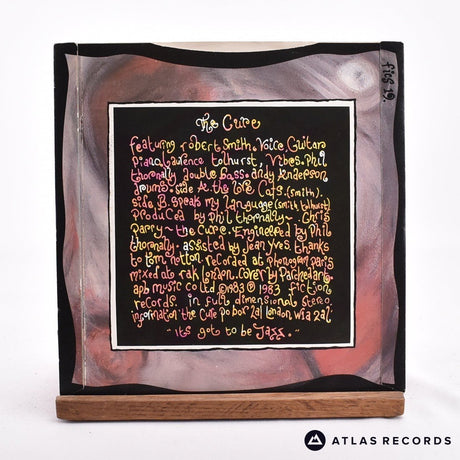 fig 19.
The Cure
featuring robert Smith. Voice, Guitar
piano, Laurence tolhurst, Vibes. Phil
thornally double bass. andy Anderson
drums. side A. the love Cats. (Smith).
side B. speak my language (Smith tolhurst)
produced by phil thornally ~ Chris
Parry ~ the Cure. Engineered by Phil
thornally. assisted by Jean Yves. thanks
to tom notton. recorded at phonogram paris
mixed at rak london. cover by Parched art.
apb music co ltd ℗ 1983 © 1983 fiction
records. in fully dimensional stereo.
information: the Cure po box 2al london w1a 2al
"its got to be Jazz."
ATLAS RECORDS